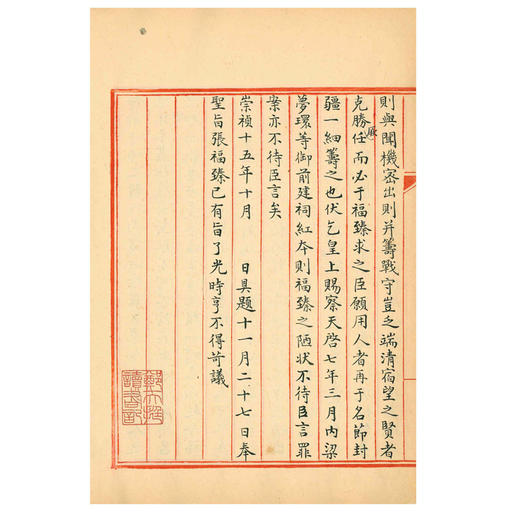 則與聞機密出則幷籌戰守豈乏端清宿望之賢者
克勝厥任而必于福臻求之臣願用人者再于名節封
疆一細籌之也伏乞皇上賜察天啓七年三月內梁
夢環等御前建祠紅本則福臻之陋狀不待臣言罪
案亦不待臣言矣
崇禎十五年十月 日具題十一月二十七日奉
聖旨張福臻已有旨了光時亨不得苛議
讀書記